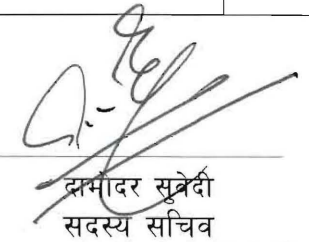 दामोदर सुवेदी
सदस्य सचिव